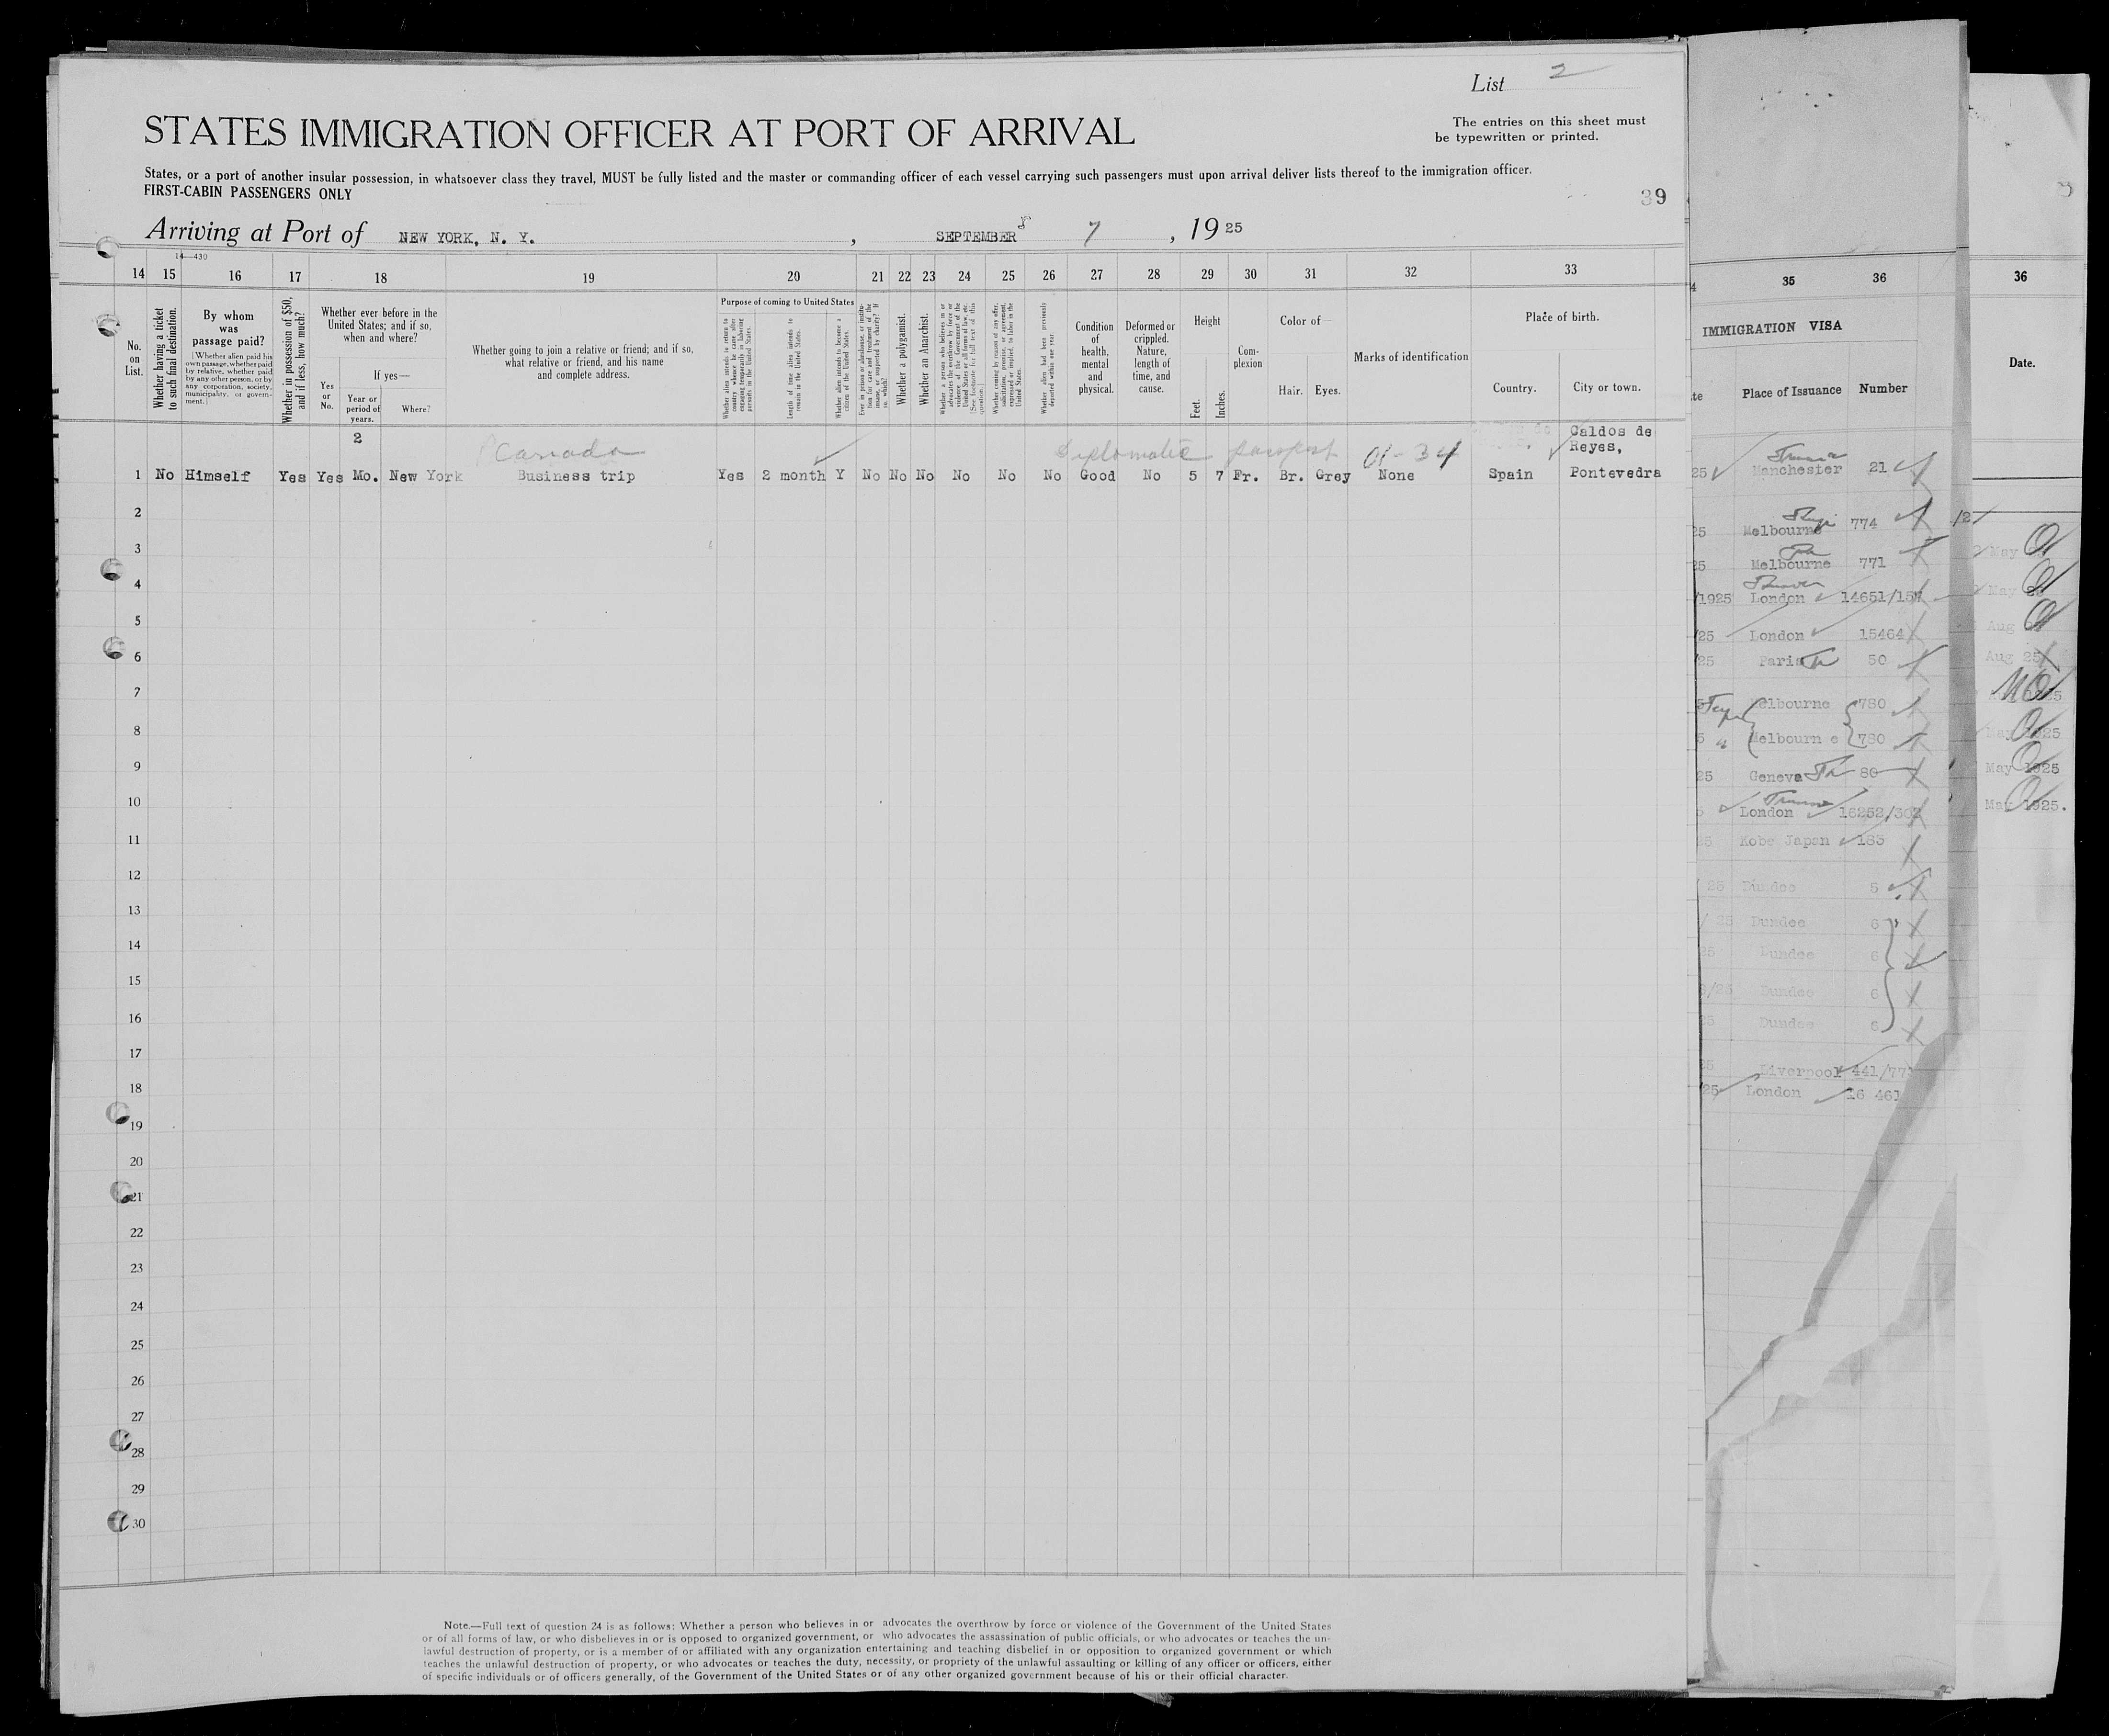 List 2
STATES IMMIGRATION OFFICER AT PORT OF ARRIVAL
The entries on this sheet must
be typewritten or printed.
States, or a port of another insular possession, in whatsoever class they travel, MUST be fully listed and the master or commanding officer of each vessel carrying such passengers must upon arrival deliver lists thereof to the immigration officer.
FIRST-CABIN PASSENGERS ONLY
39
Arriving at Port of NEW YORK, N. Y. , SEPTEMBER 7 , 1925
14—430
14 15 16 17 18 19 20 21 22 23 24 25 26 27 28 29 30 31 32 33
No. on List.
Whether having a ticket to such final destination.
By whom was passage paid?
[Whether alien paid his own passage, whether paid by relative, whether paid by any other person, or by any corporation, society, municipality, or government.]
Whether in possession of $50, and if less, how much?
Whether ever before in the United States; and if so, when and where?
If yes—
Yes or No.
Year or period of years.
Where?
Whether going to join a relative or friend; and if so, what relative or friend, and his name and complete address.
Purpose of coming to United States
Whether alien intends to return to country whence he came after engaging temporarily in laboring pursuits in the United States.
Length of time alien intends to remain in the United States.
Whether alien intends to become a citizen of the United States.
Ever in prison or almshouse, or institution for care and treatment of the insane, or supported by charity? If so, which?
Whether a polygamist.
Whether an Anarchist.
Whether a person who believes in or advocates the overthrow by force or violence of the Government of the United States or all forms of law, etc. [See footnote for full text of this question.]
Whether coming by reason of any offer, solicitation, promise, or agreement, expressed or implied, to labor in the United States.
Whether alien had been previously deported within one year.
Condition of health, mental and physical.
Deformed or crippled. Nature, length of time, and cause.
Height
Feet.
Inches.
Complexion
Color of—
Hair. Eyes.
Marks of identification
Place of birth.
Country. City or town.
Canada
Diplomatic passport
Caldos de
Reyes,
2
1 No Himself Yes Yes Mo. New York Business trip Yes 2 month Y No No No No No No Good No 5 7 Fr. Br. Grey None Spain Pontevedra
2
3
4
5
6
7
8
9
10
11
12
13
14
15
16
17
18
19
20
21
22
23
24
25
26
27
28
29
30
Note.—Full text of question 24 is as follows: Whether a person who believes in or advocates the overthrow by force or violence of the Government of the United States
or of all forms of law, or who disbelieves in or is opposed to organized government, or who advocates the assassination of public officials, or who advocates or teaches the un-
lawful destruction of property, or is a member of or affiliated with any organization entertaining and teaching disbelief in or opposition to organized government or which
teaches the unlawful destruction of property, or who advocates or teaches the duty, necessity, or propriety of the unlawful assaulting or killing of any officer or officers, either
of specific individuals or of officers generally, of the Government of the United States or of any other organized government because of his or their official character.
35 36
IMMIGRATION VISA
Place of Issuance Number
25 Manchester 21
25 Melbourne 774
25 Melbourne 771
/1925 London 14651/157
/25 London 15464
/25 Paris 50
Melbourne 780
Melbourn e 780
25 Geneva 80
London 16252/302
25 Kobe Japan 185
25 Dundee 5
/ 25 Dundee 6
25 Dundee 6
/25 Dundee 6
25 Dundee 6
25 Liverpool 441/77
/25 London 16 461
36
Date.
May
May
Aug
Aug 25
May 1925
May 1925
May 1925.